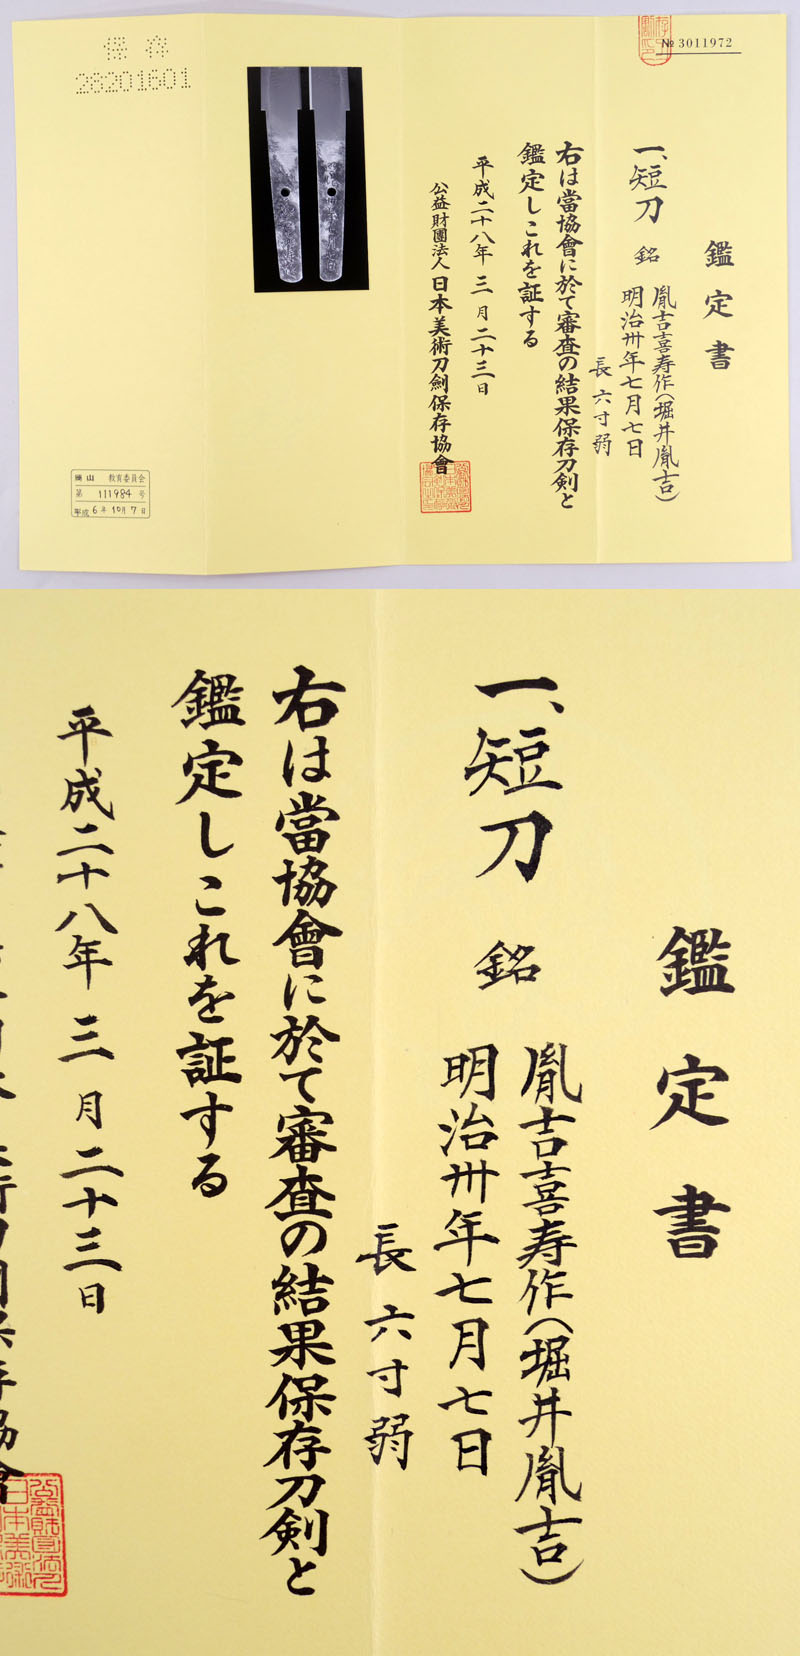 保存
28201601
№ 3011972
鑑定書
一、短刀 銘 胤吉喜寿作(堀井胤吉)
明治卅年七月七日
長 六寸弱
右は當協會に於て審査の結果保存刀剣と
鑑定しこれを証する
平成二十八年 三月 二十三日
公益財團法人 日本美術刀劍保存協會
岡山 教育委員会
第 111984 号
平成 6年 10月 7日
鑑定書
一、短刀 銘 胤吉喜寿作(堀井胤吉)
明治卅年七月七日
長 六寸弱
右は當協會に於て審査の結果保存刀剣と
鑑定しこれを証する
平成二十八年 三月 二十三日